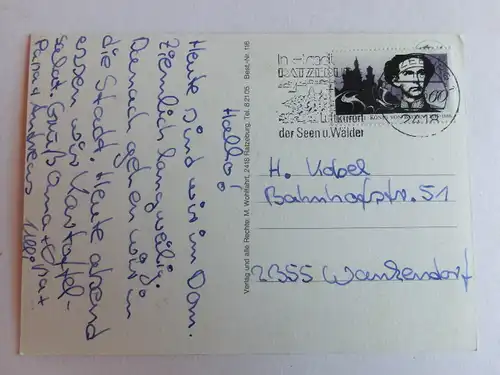 Hallo!
Heute sind wir im Dom.
Ziemlich langweilig.
Danach gehen wir in
die Stadt. Heute abend
essen wir Kartoffel-
salat. Gruß Oma + Opa
Papa + Andreas
Verlag und alle Rechte: M. Wohlfahrt, 2418 Ratzeburg, Tel. 8 21 05 Best.-Nr. 116
Inselstadt
RATZEBURG
Kurort
der Seen u. Wälder
60
2418
H. Kobel
Bahnhofstr. 51
2355 Wankendorf